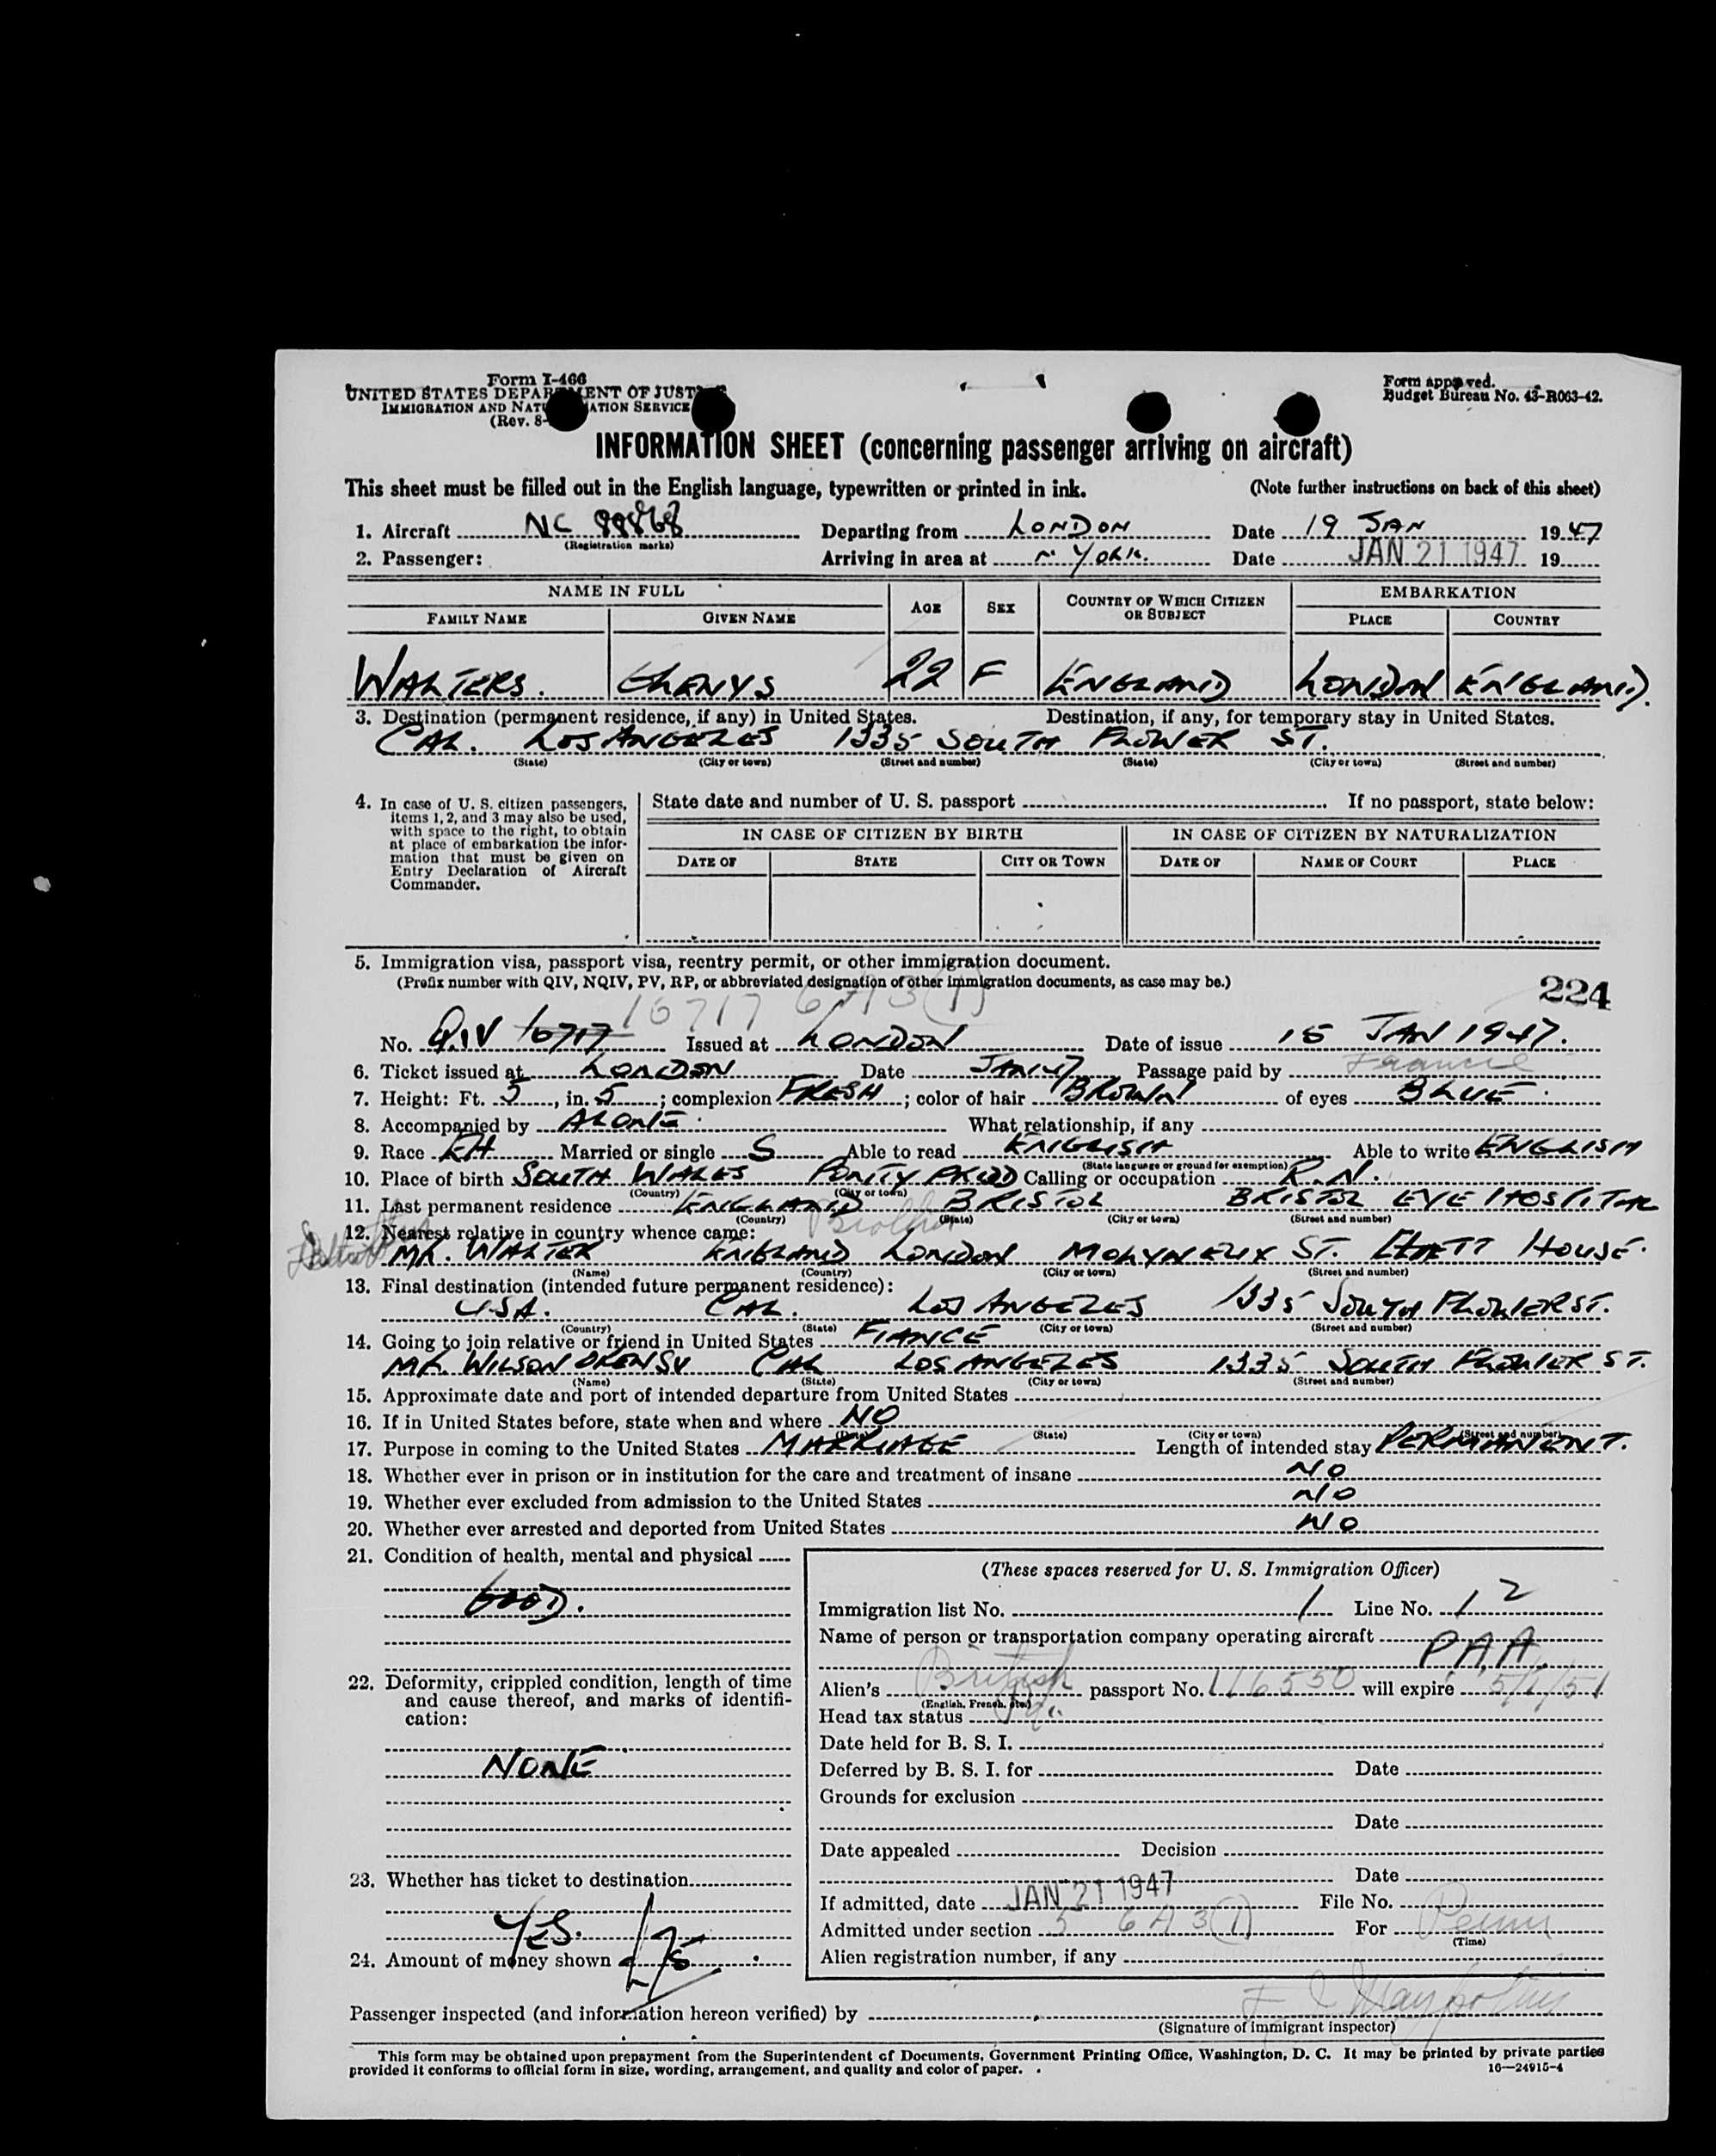 Form I-466
UNITED STATES DEPARTMENT OF JUSTICE
IMMIGRATION AND NATURALIZATION SERVICE
(Rev. 8-
Form approved.
Budget Bureau No. 43-R063-42.
INFORMATION SHEET (concerning passenger arriving on aircraft)
This sheet must be filled out in the English language, typewritten or printed in ink. (Note further instructions on back of this sheet)
1. Aircraft NC 88868 Departing from LONDON Date 19 JAN 1947
(Registration marks)
2. Passenger: Arriving in area at N YORK. Date JAN 21 1947 19
NAME IN FULL AGE SEX COUNTRY OF WHICH CITIZEN OR SUBJECT EMBARKATION
FAMILY NAME GIVEN NAME PLACE COUNTRY
WALTERS. GLENYS 22 F ENGLAND LONDON ENGLAND.
3. Destination (permanent residence, if any) in United States. Destination, if any, for temporary stay in United States.
CAL. LOS ANGELES 1335 SOUTH FLOWER ST.
(State) (City or town) (Street and number) (State) (City or town) (Street and number)
4. In case of U. S. citizen passengers, items 1, 2, and 3 may also be used, with space to the right, to obtain at place of embarkation the information that must be given on Entry Declaration of Aircraft Commander.
State date and number of U. S. passport If no passport, state below:
IN CASE OF CITIZEN BY BIRTH IN CASE OF CITIZEN BY NATURALIZATION
DATE OF STATE CITY OR TOWN DATE OF NAME OF COURT PLACE
5. Immigration visa, passport visa, reentry permit, or other immigration document.
(Prefix number with QIV, NQIV, PV, RP, or abbreviated designation of other immigration documents, as case may be.)
224
16717 6A3(1)
No. QIV 16717 Issued at LONDON Date of issue 15 JAN 1947.
6. Ticket issued at LONDON Date JAN 17 Passage paid by
7. Height: Ft. 5, in. 5; complexion FRESH; color of hair BROWN of eyes BLUE
8. Accompanied by ALONE. What relationship, if any
9. Race EH Married or single S Able to read ENGLISH Able to write ENGLISH
(State language or ground for exemption)
10. Place of birth SOUTH WALES PONTYPRIDD Calling or occupation R.N.
(Country) (City or town)
11. Last permanent residence ENGLAND BRISTOL BRISTOL EYE HOSPITAL
(Country) (State) (City or town) (Street and number)
12. Nearest relative in country whence came:
MR. WALTER ENGLAND LONDON MOLYNEUX ST. HOUSE.
(Name) (Country) (City or town) (Street and number)
13. Final destination (intended future permanent residence):
U.S.A. CAL. LOS ANGELES 1335 SOUTH FLOWER ST.
(Country) (State) (City or town) (Street and number)
14. Going to join relative or friend in United States FIANCE
MR. WILSON CAL LOS ANGELES 1335 SOUTH FLOWER ST.
(Name) (State) (City or town) (Street and number)
15. Approximate date and port of intended departure from United States
16. If in United States before, state when and where NO
(Date) (State) (City or town) (Street and number)
17. Purpose in coming to the United States MARRIAGE Length of intended stay PERMANENT.
18. Whether ever in prison or in institution for the care and treatment of insane NO
19. Whether ever excluded from admission to the United States NO
20. Whether ever arrested and deported from United States NO
21. Condition of health, mental and physical
GOOD.
22. Deformity, crippled condition, length of time and cause thereof, and marks of identification:
NONE
23. Whether has ticket to destination
YES.
24. Amount of money shown £75
(These spaces reserved for U. S. Immigration Officer)
Immigration list No. 1 Line No. 12
Name of person or transportation company operating aircraft PAA
Alien's British passport No. 116550 will expire 5/1/51
(English, French, etc.)
Head tax status
Date held for B. S. I.
Deferred by B. S. I. for Date
Grounds for exclusion
Date
Date appealed Decision
Date
If admitted, date JAN 21 1947 File No.
Admitted under section 5 6A3(1) For Perm
(Time)
Alien registration number, if any
Passenger inspected (and information hereon verified) by
(Signature of immigrant inspector)
This form may be obtained upon prepayment from the Superintendent of Documents, Government Printing Office, Washington, D. C. It may be printed by private parties
provided it conforms to official form in size, wording, arrangement, and quality and color of paper. 16—24915-4